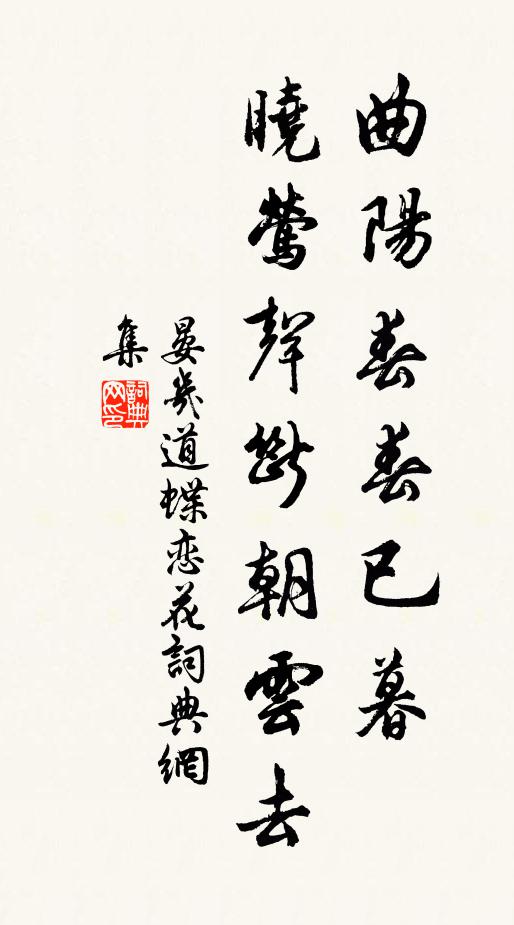 曲陽春春已暮
曉鶯聲斷朝雲去
晏幾道蝶恋花詞典網
集
詞典
网印